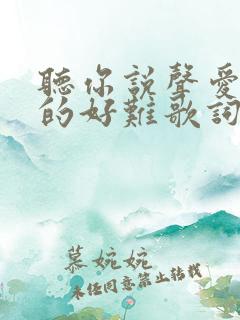 聽你説聲愛
的好難歌詞
慕婉婉
未经同意禁止转载